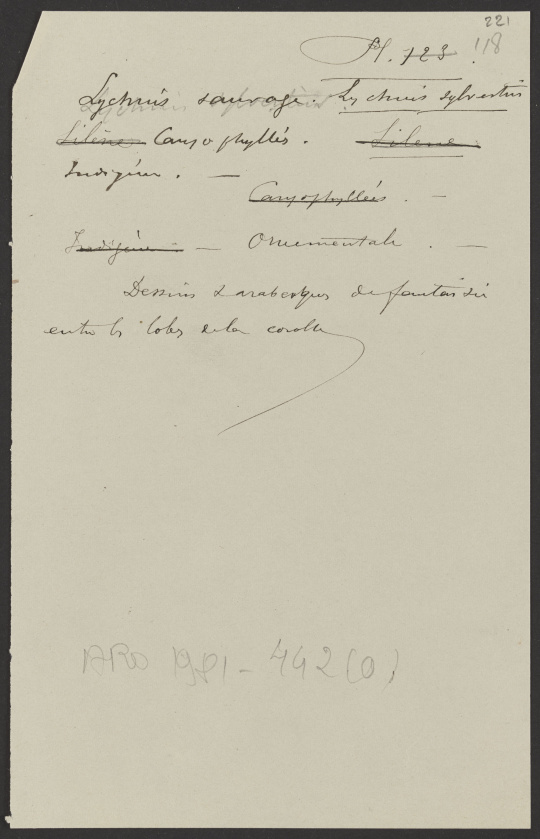 221
Pl. 123. 118
Lychnis sauvage. Lychnis sylvestris
Silène Caryophyllés. Silene
Indigène. —
Caryophyllées. —
Indigène — Ornementale. —
Dessins d'arabesques de fantaisie
entre les lobes de la corolle
ARO 1981-442(0)